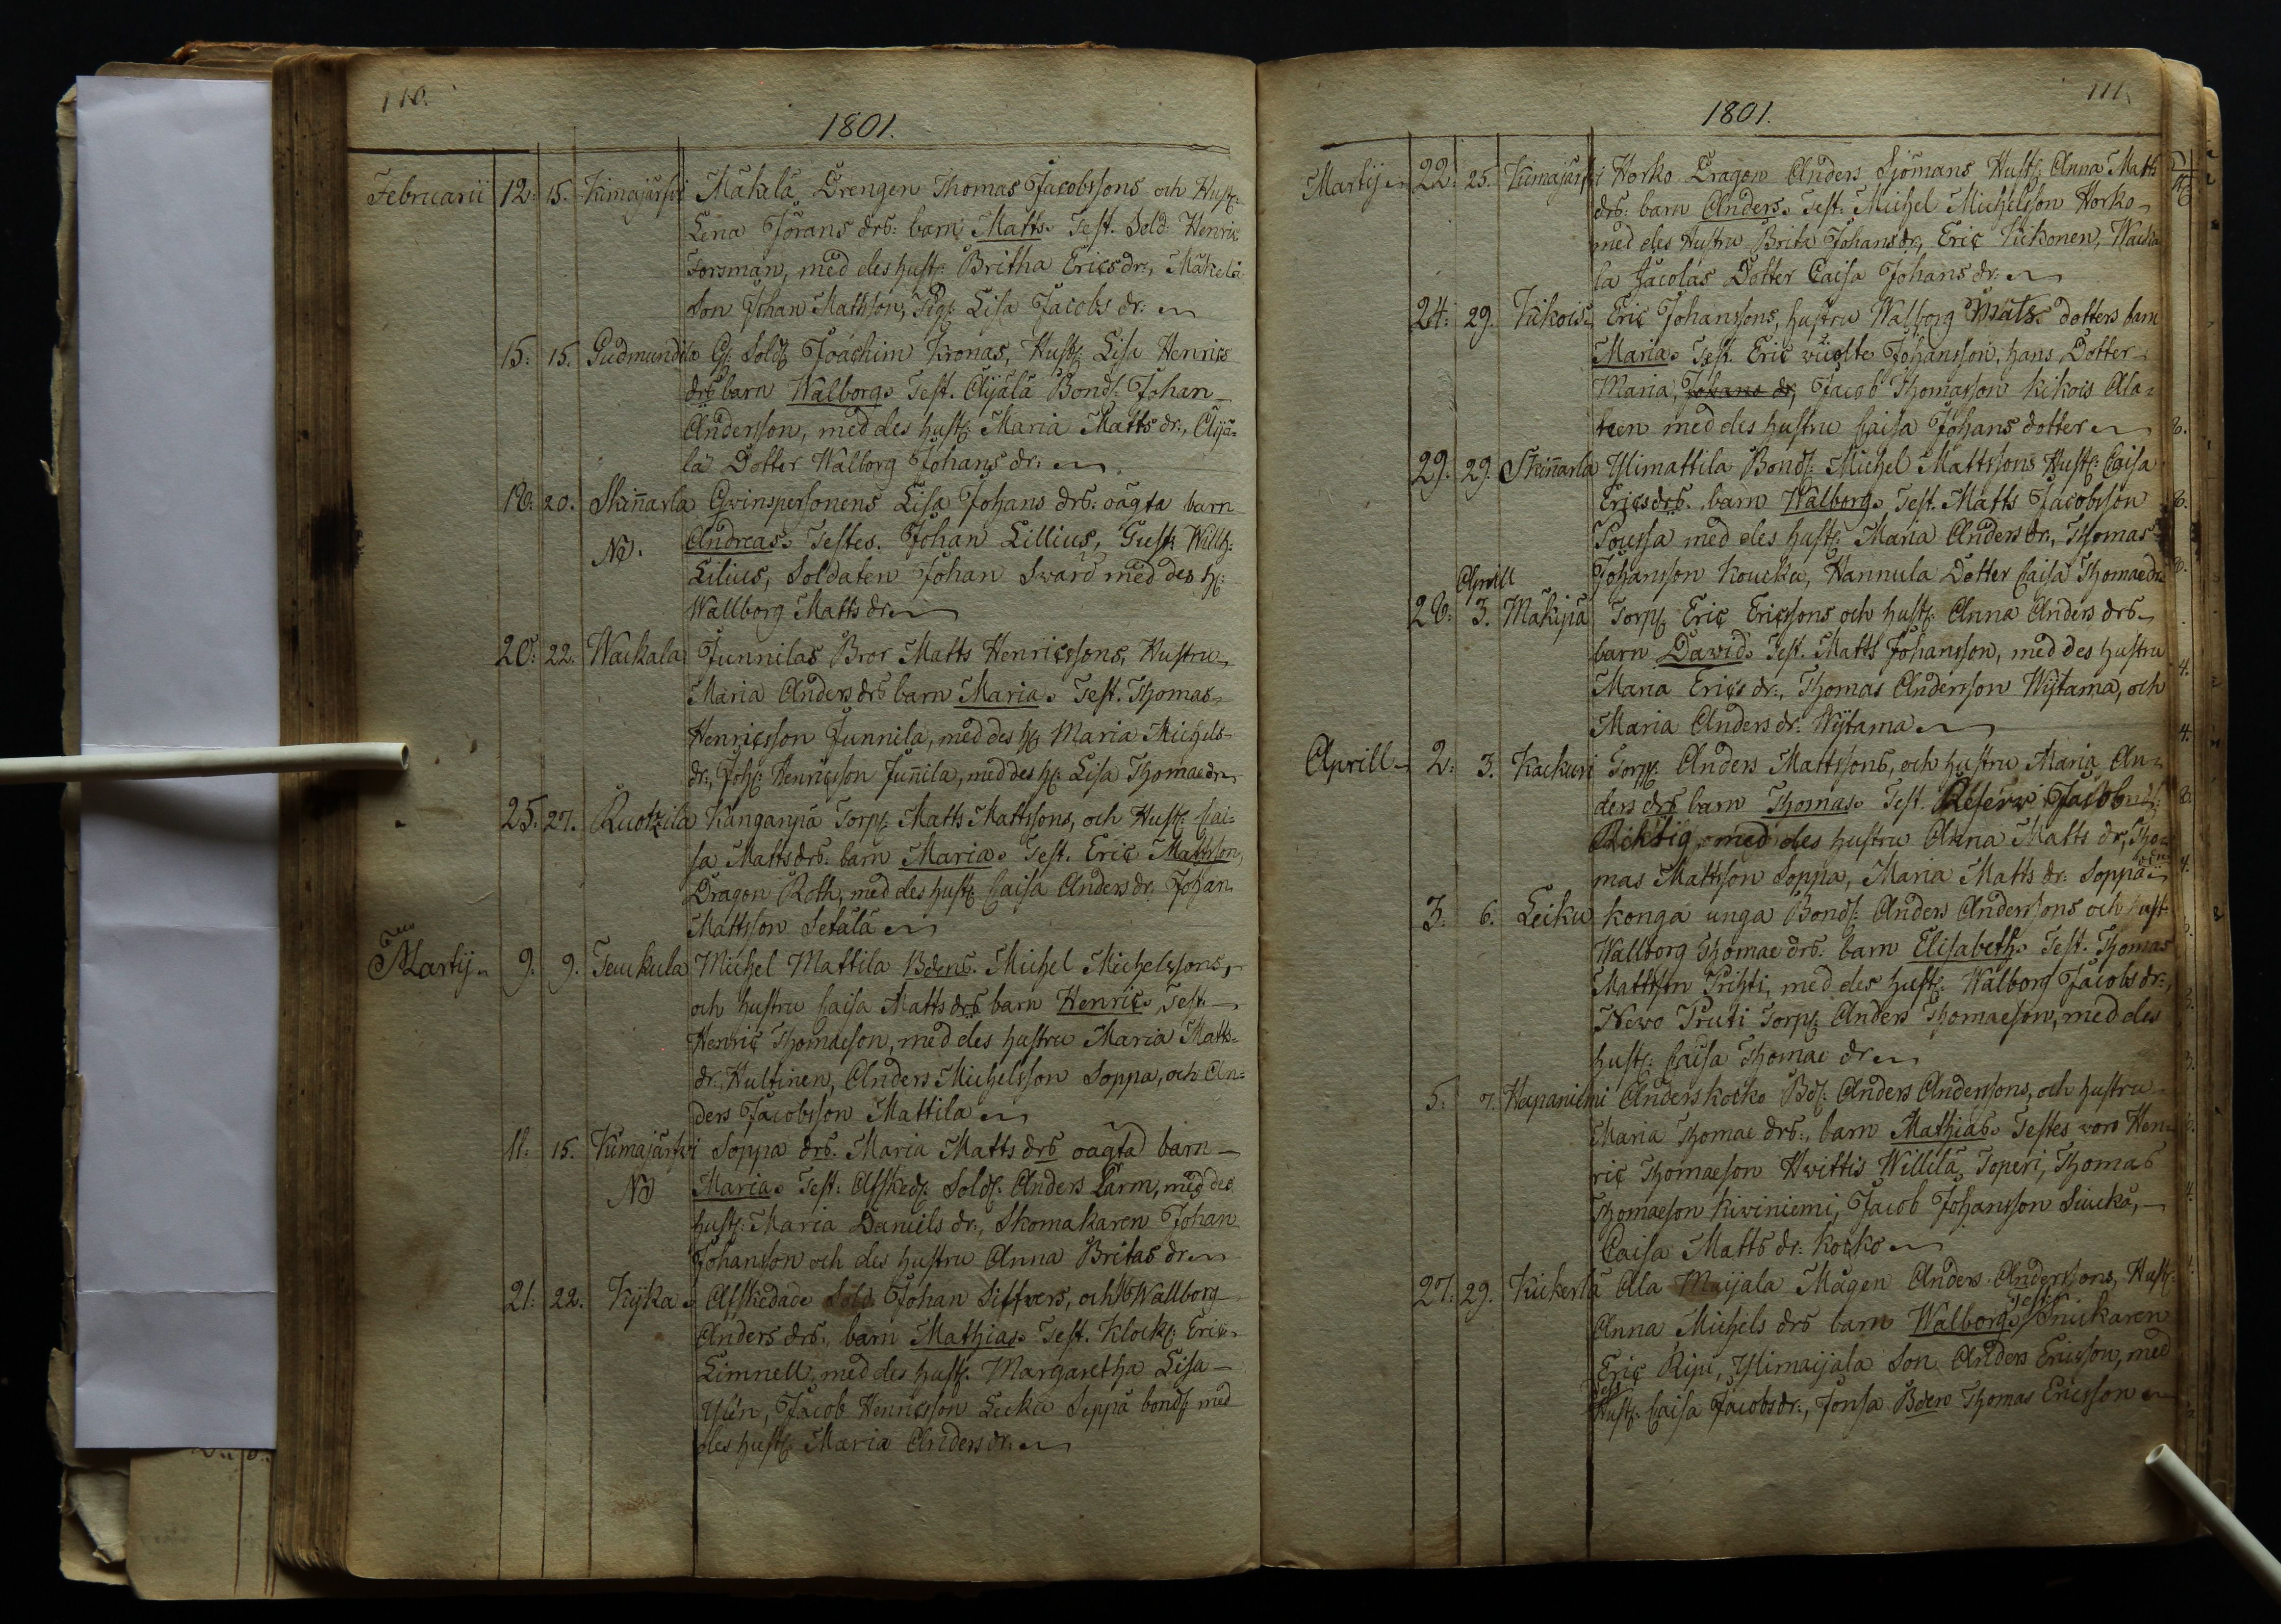 110.
1801.
Februarii 12. 15. Kimajärfvi Mäkelä Drengen Thomas Jacobssons och Hust:
Lena Jörans drs: barn Matts. Test. Sold: Henric
Forsman, med des hust: Britha Ericsdr:, Mäkelä
Son Johan Mattsson, Pig: Lisa Jacobs dr:
15. 15. Gudmundila G: Sold: Joachim Kronas, Hust: Lisa Henrics
drs barn Walborg. Test. Äijälä Bond: Johan
Andersson, med des hust: Maria Matts dr:, Äijä-
lä Dotter Walborg Johans dr:
18. 20. Skinnarla Qvinspersonens Lisa Johans drs: oägta barn
NB. Andreas. Testes. Johan Lillius, Gust: Willh:
Lilius, Soldaten Johan Swärd med des h:
Wallborg Matts dr
20. 22. Wackala Junnilas Bror Matts Henricssons, Hustru
Maria Anders drs barn Maria. Test. Thomas
Henricsson Junnila, med des h: Maria Michels
dr:, Joh: Henricsson Junnila, med des h: Lisa Thomaedr
25. 27. Ruotzila Kanganpiä Torp: Matts Mattssons, och Hust: Cai-
sa Mattsdrs: barn Maria. Test. Eric Mattsson,
Dragon Roth, med des hust: Caisa Andersdr: Johan
Mattsson Setälä
Martij 9. 9. Teuckula Michel Mattila Bdens. Michel Michelssons,
och hustru Caisa Matts drs barn Henric. Test.
Henric Thomaeson, med des hustru Maria Matts
dr: Hultinen, Anders Michelsson Soppa, och An-
ders Jacobsson Mattila
11. 15. Kimajärfvi Soppa drs. Maria Matts drs oägta barn
NB Maria. Test: Afsked: Sold: Anders Larm, med des
hust: Maria Daniels dr:, Skomakaren Johan
Johansson och des hustru Anna Britas dr
21. 22. Kijka Afskedade Sold Johan Siffwers, och H Wallborg
Anders drs: barn Mathias. Test. Klock: Eric
Limnell, med des hust: Margaretha Lisa
Ylén, Jacob Henricsson Leiku Seppä bond: med
des hust: Maria Anders dr:
111.
1801.
Martij 22. 25. Kimajärfvi Horko Dragon Anders Sjömans Hust: Anna Matts
drs: barn Anders. Test: Michel Michelsson Horko
med des Hustru Brita Johansdr, Eric Kikonen, Wacka
la Jacolas Dotter Caisa Johans dr:
24. 29. Kikois Eric Johanssons, hustru Walborg Mats dotters barn
Maria. Test. Eric Johansson, hans Dotter
Maria, Johans dr, Jacob Thomasson kikois Ala-
len med des hustru Caisa Johans dotter
29. 29. Skinnarla Ylimattila Bond: Michel Mattssons Hust: Caisa
Ericsdrs. barn Walborg. Test. Matts Jacobsson
Poussa med des hust: Maria Anders dr., Thomas
Johansson Koucku, Hannula Dotter Caisa Thomaedr
April
28. 3. Mäkipiä Torp: Eric Ericssons och hust: Anna Anders drs
barn Dawid. Test. Matts Johansson, med des hustru
Maria Erics dr:, Thomas Andersson Wijtama, och
Maria Anders dr: Wijtama
Aprill 2. 3. Kackuri Torp: Anders Mattssons, och hustru Maria An-
ders drs barn Thomas. Test. Reserv Jacob
Richtig, med des hustru Anna Matts dr, Tho-
mas Mattsson Soppa, Maria Matts dr: Soppa
3. 6. Leiku konga unga Bond: Anders Anderssons och hust
Wallborg Thomae drs: barn Elisabeth. Test. Thomas
Mattsson Prihti, med des hust: Walborg Jacobs dr:,
Newo Pruti Torp: Anders Thomaeson, med des
hust: Caisa Thomae dr
5. 7. Hapaniemi Anderskocko Bd: Anders Anderssons, och hustru
Maria Thomae drs:, barn Mathias. Testes woro Hen-
ric Thomaeson Hwittis Willilä, Toperi, Thomas
Thomaeson Kiviniemi, Jacob Johansson Siucko,
Caisa Matts dr: Kocko
27. 29. Kickerlä Ala Maijala Mågen Anders Anderssons, Hust:
Anna Michels drs barn Walborg. Test: Snickaren
Eric Ripi, Ylimaijala Son Anders Ericsson, med
des
Hust: Caisa Jacobsdr:, Jonsa Bden Thomas Ericsson